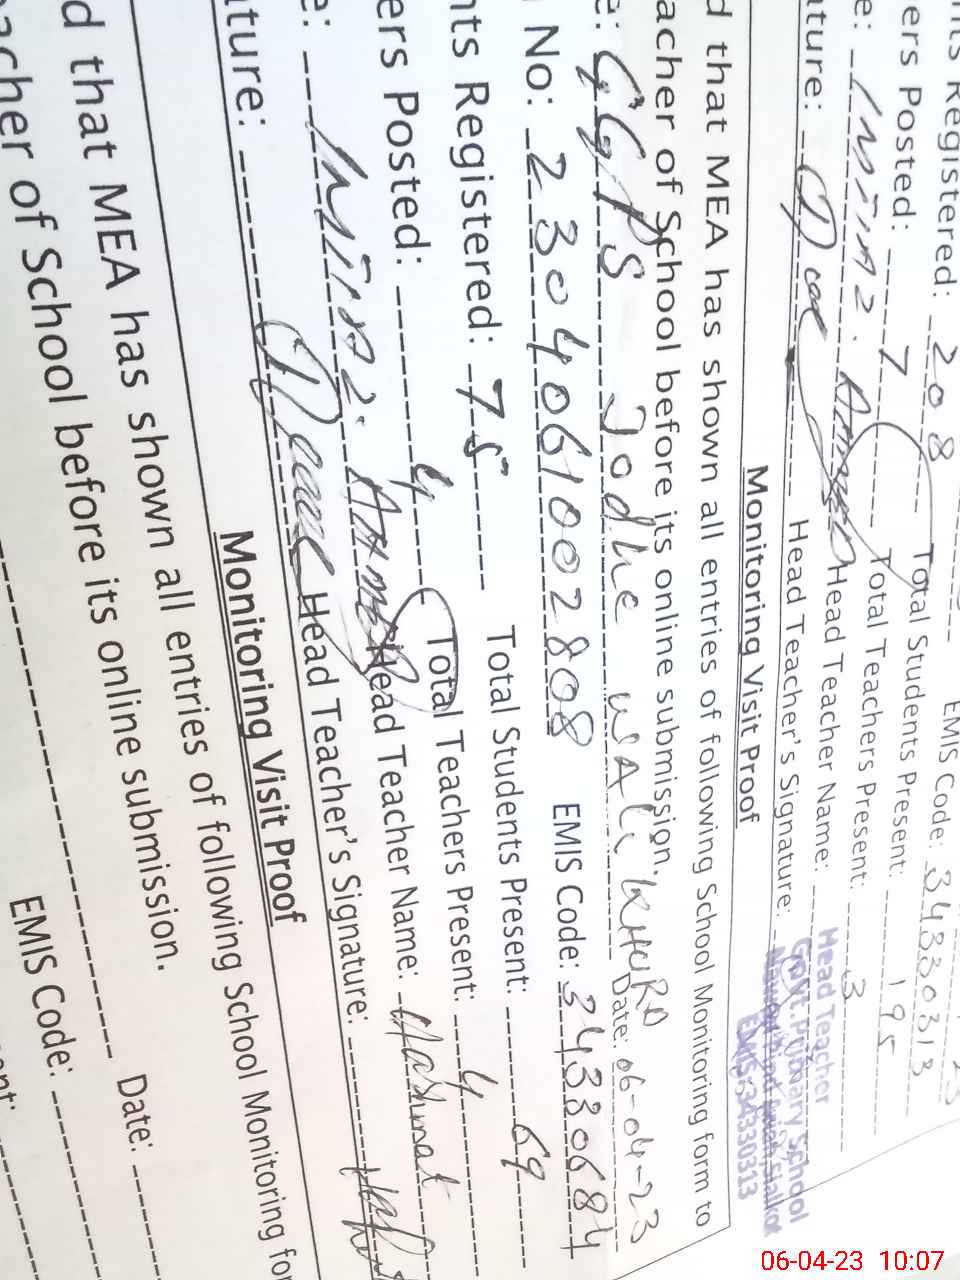 nts Registered: 208
EMIS Code: 34330313
ers Posted: 7 Total Students Present: 195
e: Total Teachers Present: 3
ature: Head Teacher Name:
Head Teacher's Signature:
Head Teacher
Govt. Primary School
Sialkot
EMIS: 34330313
Monitoring Visit Proof
d that MEA has shown all entries of following School Monitoring form to
acher of School before its online submission.
e: GGPS Jodhe wAli Date: 06-04-23
No: 2304061002808 EMIS Code: 34330684
nts Registered: 75 Total Students Present: 69
ers Posted: 4 Total Teachers Present: 4
e: Ahmed Head Teacher Name: Hashmat
ature: Head Teacher's Signature:
Monitoring Visit Proof
d that MEA has shown all entries of following School Monitoring for
acher of School before its online submission.
Date:
EMIS Code:
ent:
06-04-23 10:07